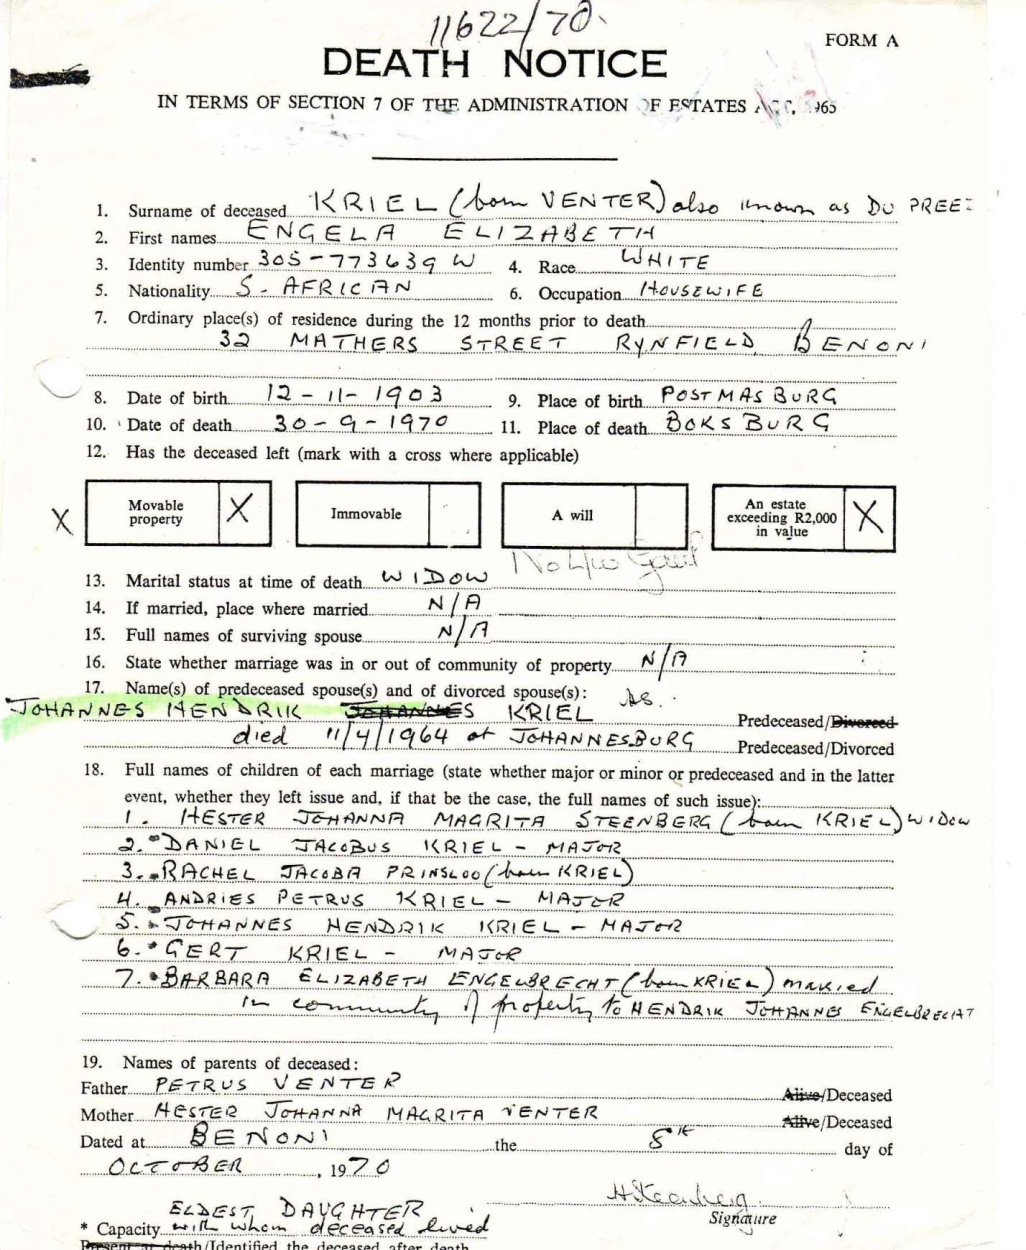 11622/70.
FORM A
DEATH NOTICE
IN TERMS OF SECTION 7 OF THE ADMINISTRATION OF ESTATES ACT, 1965
1. Surname of deceased KRIEL (born VENTER) also known as DU PREEZ
2. First names ENGELA ELIZABETH
3. Identity number 305-773639 W 4. Race WHITE
5. Nationality S. AFRICAN 6. Occupation HOUSEWIFE
7. Ordinary place(s) of residence during the 12 months prior to death
32 MATHERS STREET RYNFIELD BENONI
8. Date of birth 12-11-1903 9. Place of birth POSTMASBURG
10. Date of death 30-9-1970 11. Place of death BOKSBURG
12. Has the deceased left (mark with a cross where applicable)
X Movable property X Immovable A will An estate exceeding R2,000 in value X
No
13. Marital status at time of death WIDOW
14. If married, place where married N/A
15. Full names of surviving spouse N/A
16. State whether marriage was in or out of community of property N/A
17. Name(s) of predeceased spouse(s) and of divorced spouse(s):
JOHANNES HENDRIK JOHANNES KRIEL Predeceased/Divorced
died 11/4/1964 at JOHANNESBURG Predeceased/Divorced
18. Full names of children of each marriage (state whether major or minor or predeceased and in the latter
event, whether they left issue and, if that be the case, the full names of such issue):
1. HESTER JOHANNA MAGRITA STEENBERG (born KRIEL) WIDOW
2. DANIEL JACOBUS KRIEL - MAJOR
3. RACHEL JACOBA PRINSLOO (born KRIEL)
4. ANDRIES PETRUS KRIEL - MAJOR
5. JOHANNES HENDRIK KRIEL - MAJOR
6. GERT KRIEL - MAJOR
7. BARBARA ELIZABETH ENGELBRECHT (born KRIEL) married
in community of property to HENDRIK JOHANNES ENGELBRECHT
19. Names of parents of deceased:
Father PETRUS VENTER Alive/Deceased
Mother HESTER JOHANNA MAGRITA VENTER Alive/Deceased
Dated at BENONI the 8th day of
OCTOBER, 1970
HSteenberg
Signature
ELDEST DAUGHTER
* Capacity with whom deceased lived
Present at death/Identified the deceased after death